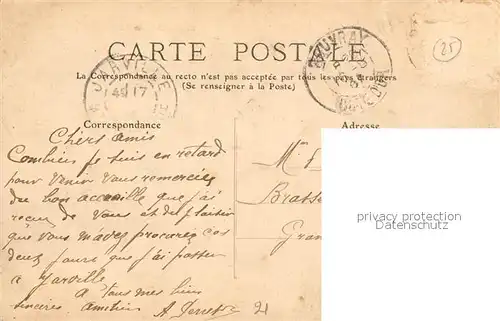 CARTE POSTALE
La Correspondance au recto n'est pas acceptée par tous les pays étrangers
(Se renseigner à la Poste)
25
Correspondance
Adresse
Chers amis
Combien je suis en retard
pour venir vous remercier
du bon accueille que j'ai
recu de vous et du plaisir
que vous m'avez procurer ces
deux jours que j'ai passer
a Jarville
a tous mes biens
sinceres amitiés
Brasse
Gran
privacy protection
Datenschutz